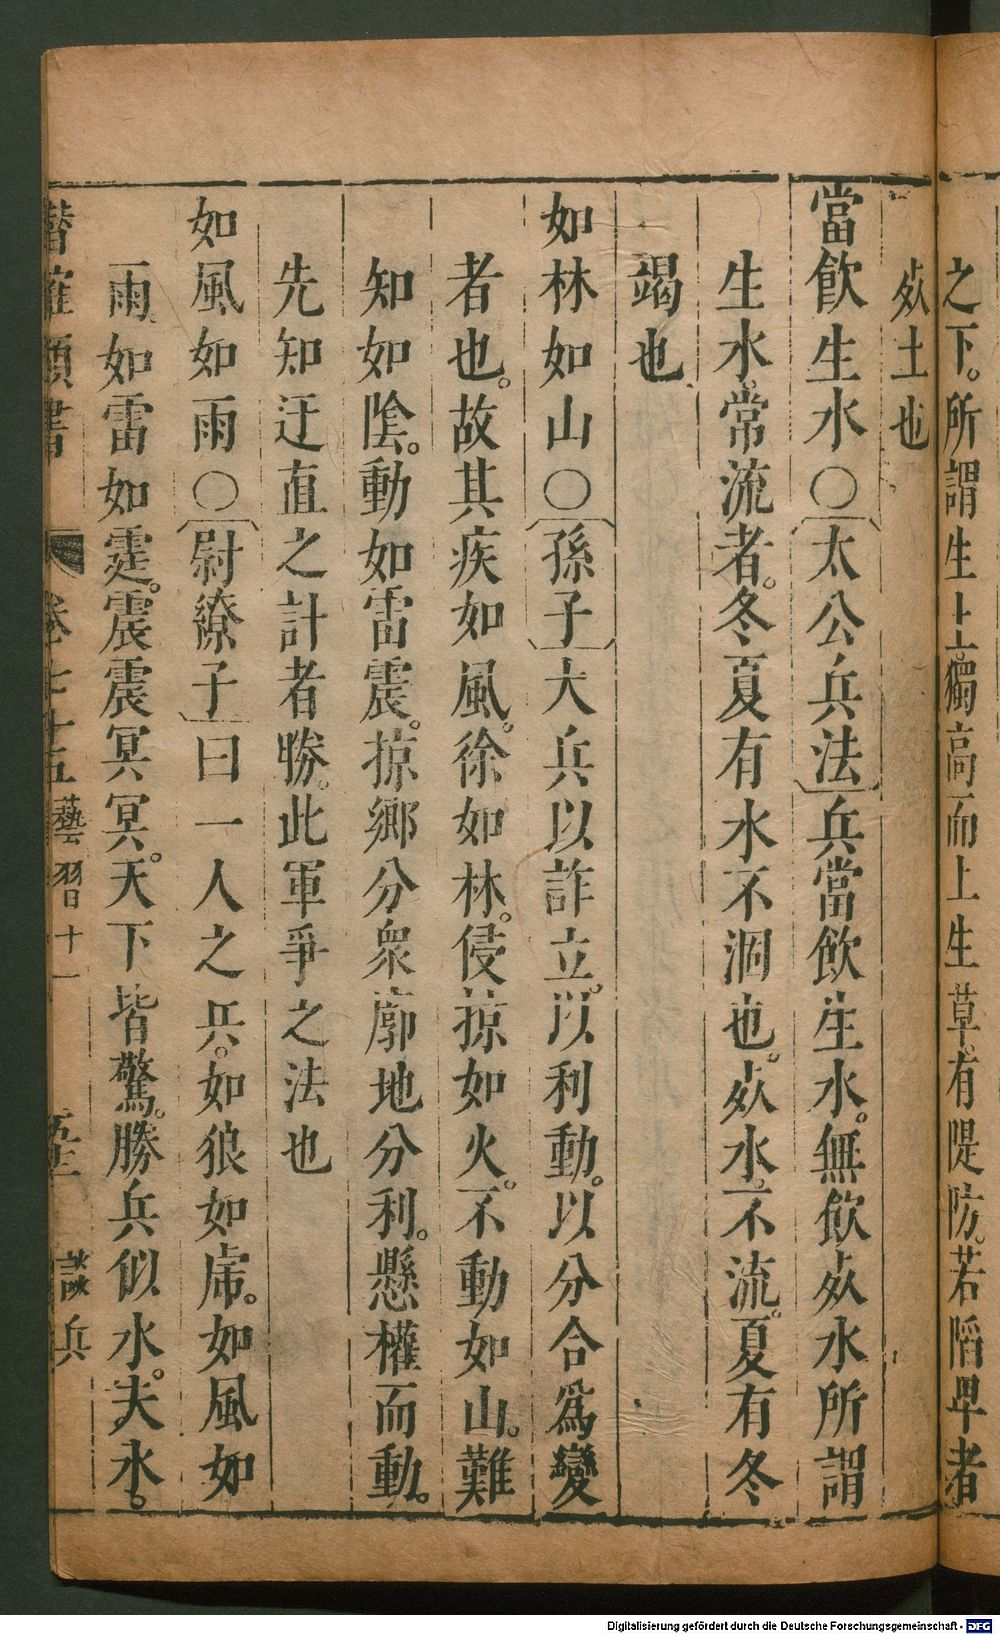 之下。所謂生土。獨高而上生草。有隄防。若陷卑者
㱙土也
當飲生水○太公兵法兵當飲生水。無飲㱙水所謂
生水。常流者。冬夏有水不涸也。㱙水。不流。夏有冬
竭也
如林如山○孫子大兵以詐立。以利動。以分合爲變
者也。故其疾如風。徐如林。侵掠如火。不動如山。難
知如陰。動如雷震。掠鄉分衆廓地分利。懸權而動。
先知迂直之計者勝。此軍爭之法也
如風如雨○尉繚子曰一人之兵。如狼如虎。如風如
雨。如雷如霆。震震冥冥。天下皆驚。勝兵似水。夫水。
潛確類書 卷七十五 藝習十一 談兵
Digitalisierung gefördert durch die Deutsche Forschungsgemeinschaft - DFG